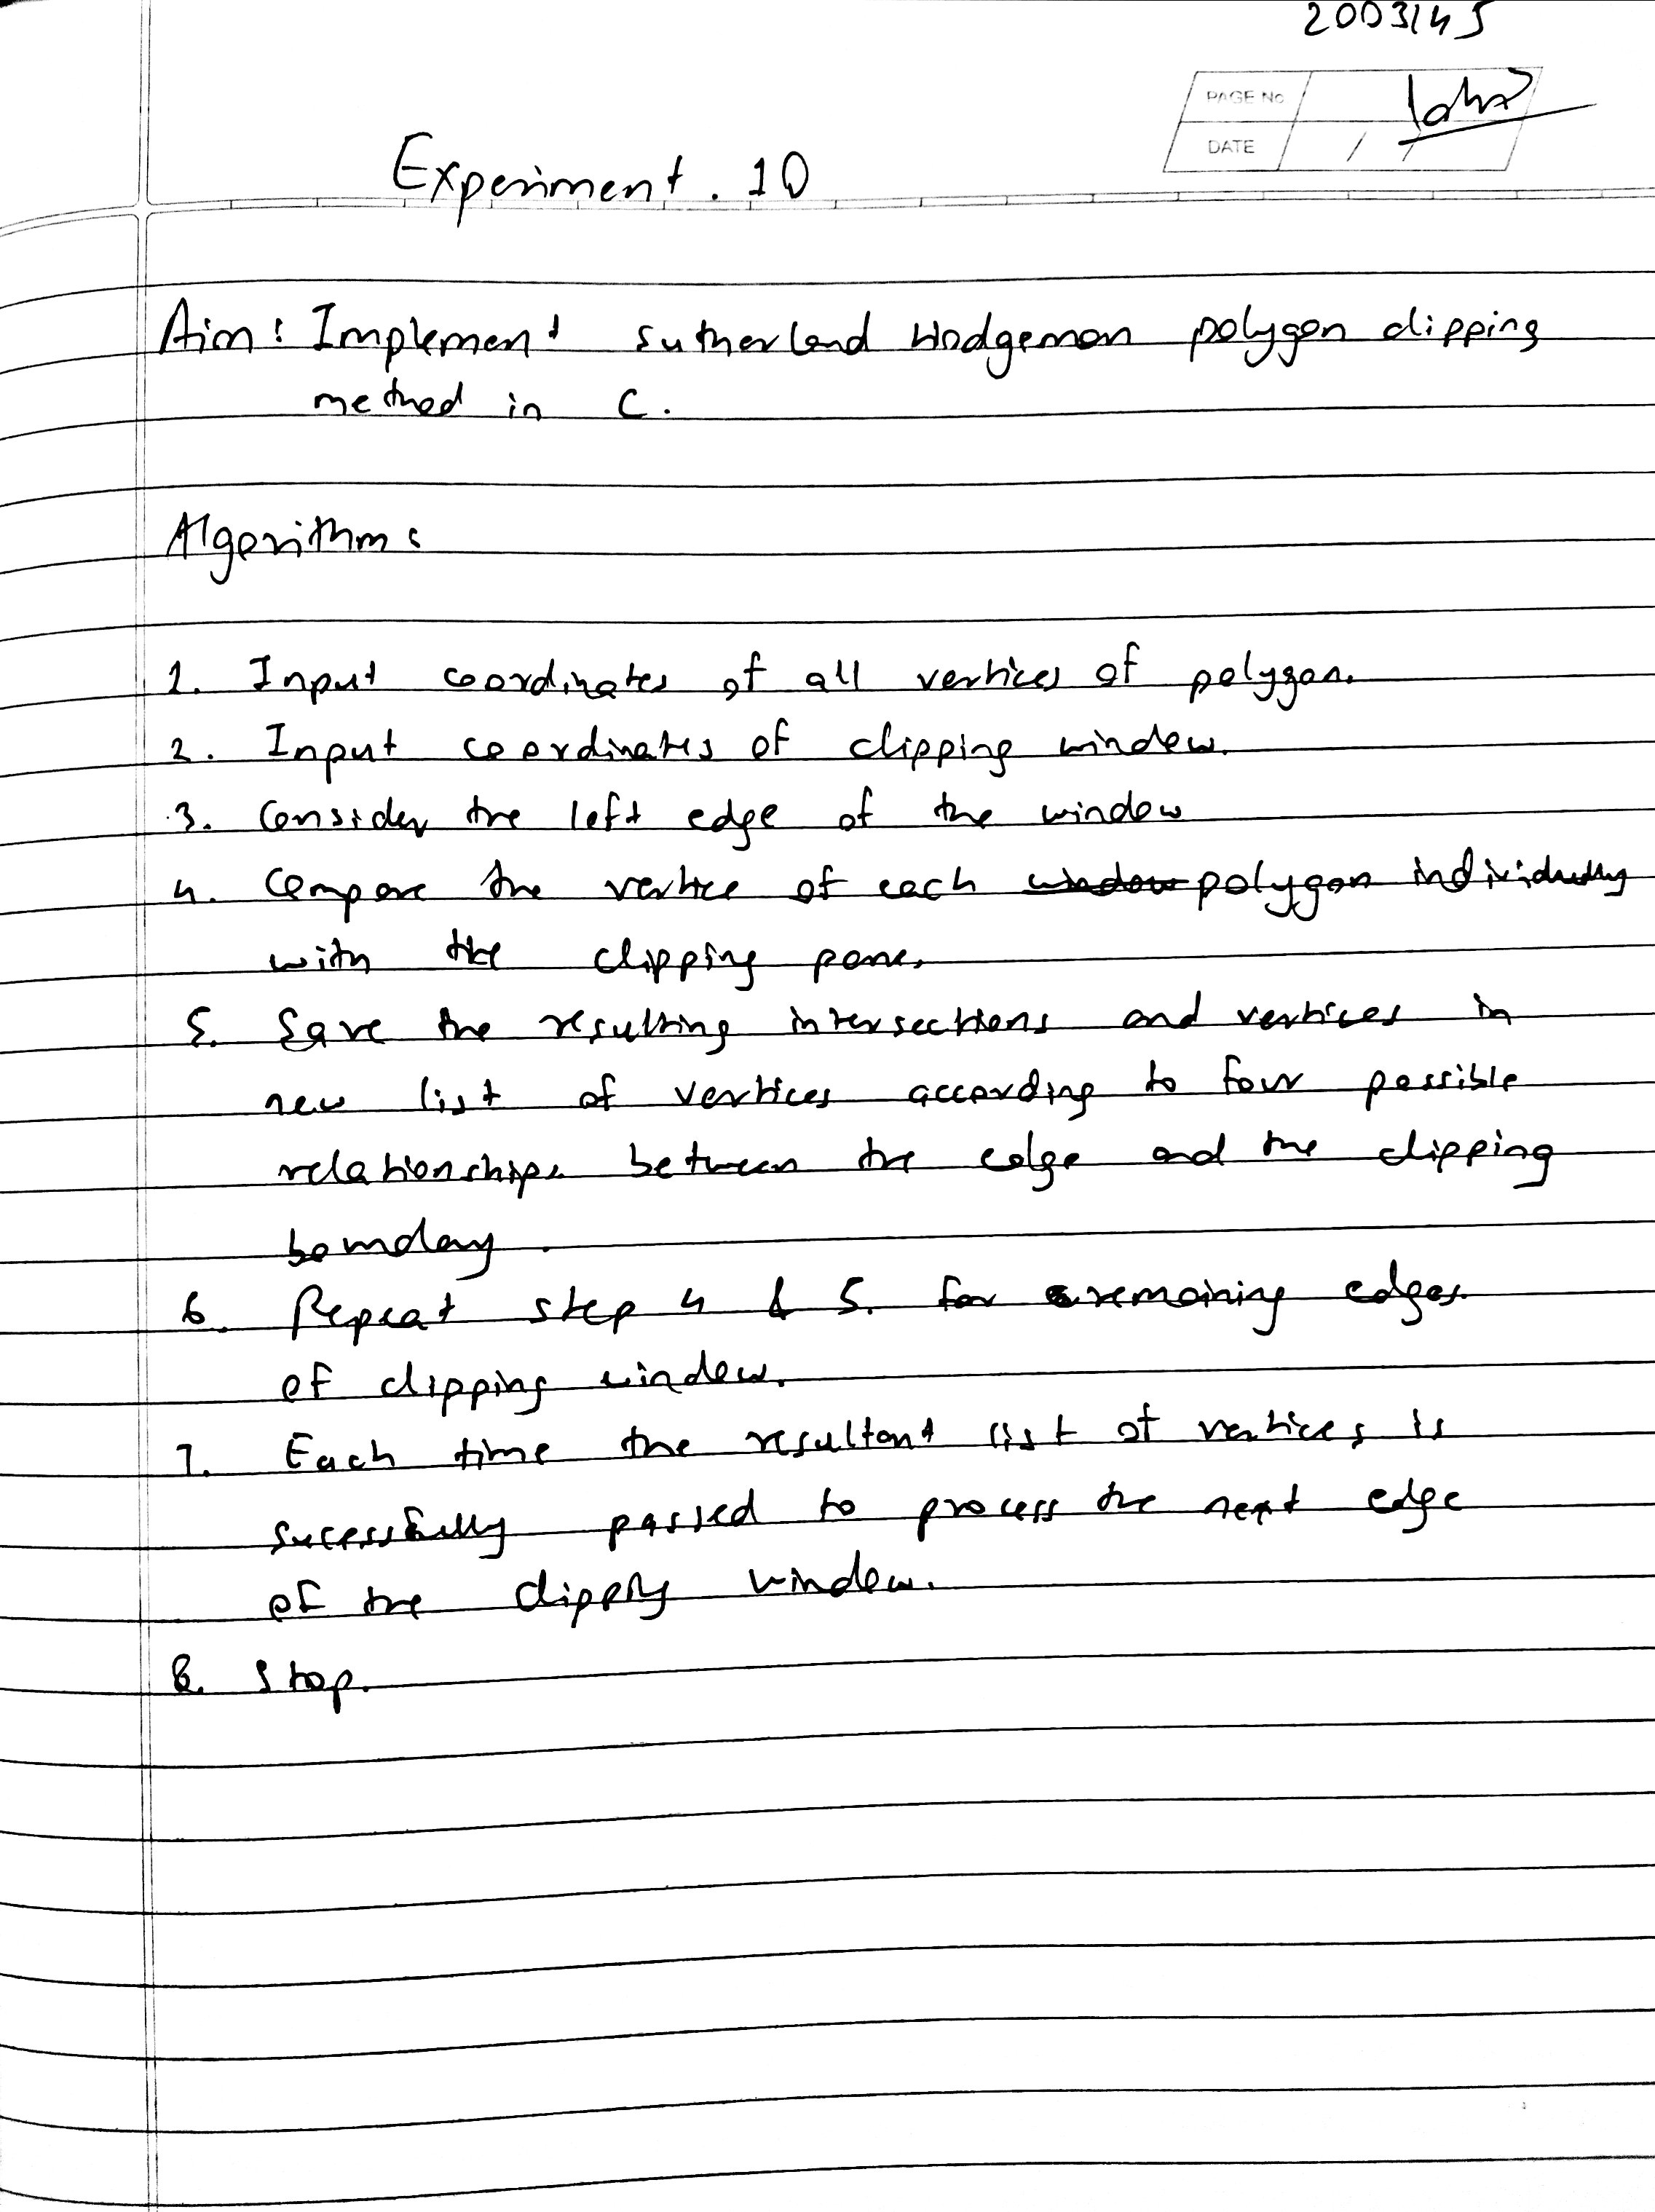 2003145
PAGE No
DATE / /
Experiment. 10
Aim: Implement Sutherland Hodgeman polygon clipping
method in C.
Algorithm:
1. Input coordinates of all vertices of polygon.
2. Input coordinates of clipping window.
3. Consider the left edge of the window
4. Compare the vertice of each window polygon individually
with the clipping pane.
5. Save the resulting intersections and vertices in
new list of vertices according to four possible
relationships between the edge and the clipping
boundary.
6. Repeat step 4 & 5. for remaining edges.
of clipping window.
7. Each time the resultant list of vertices is
sucessfully passed to process the next edge
of the clipping window.
8. Stop.